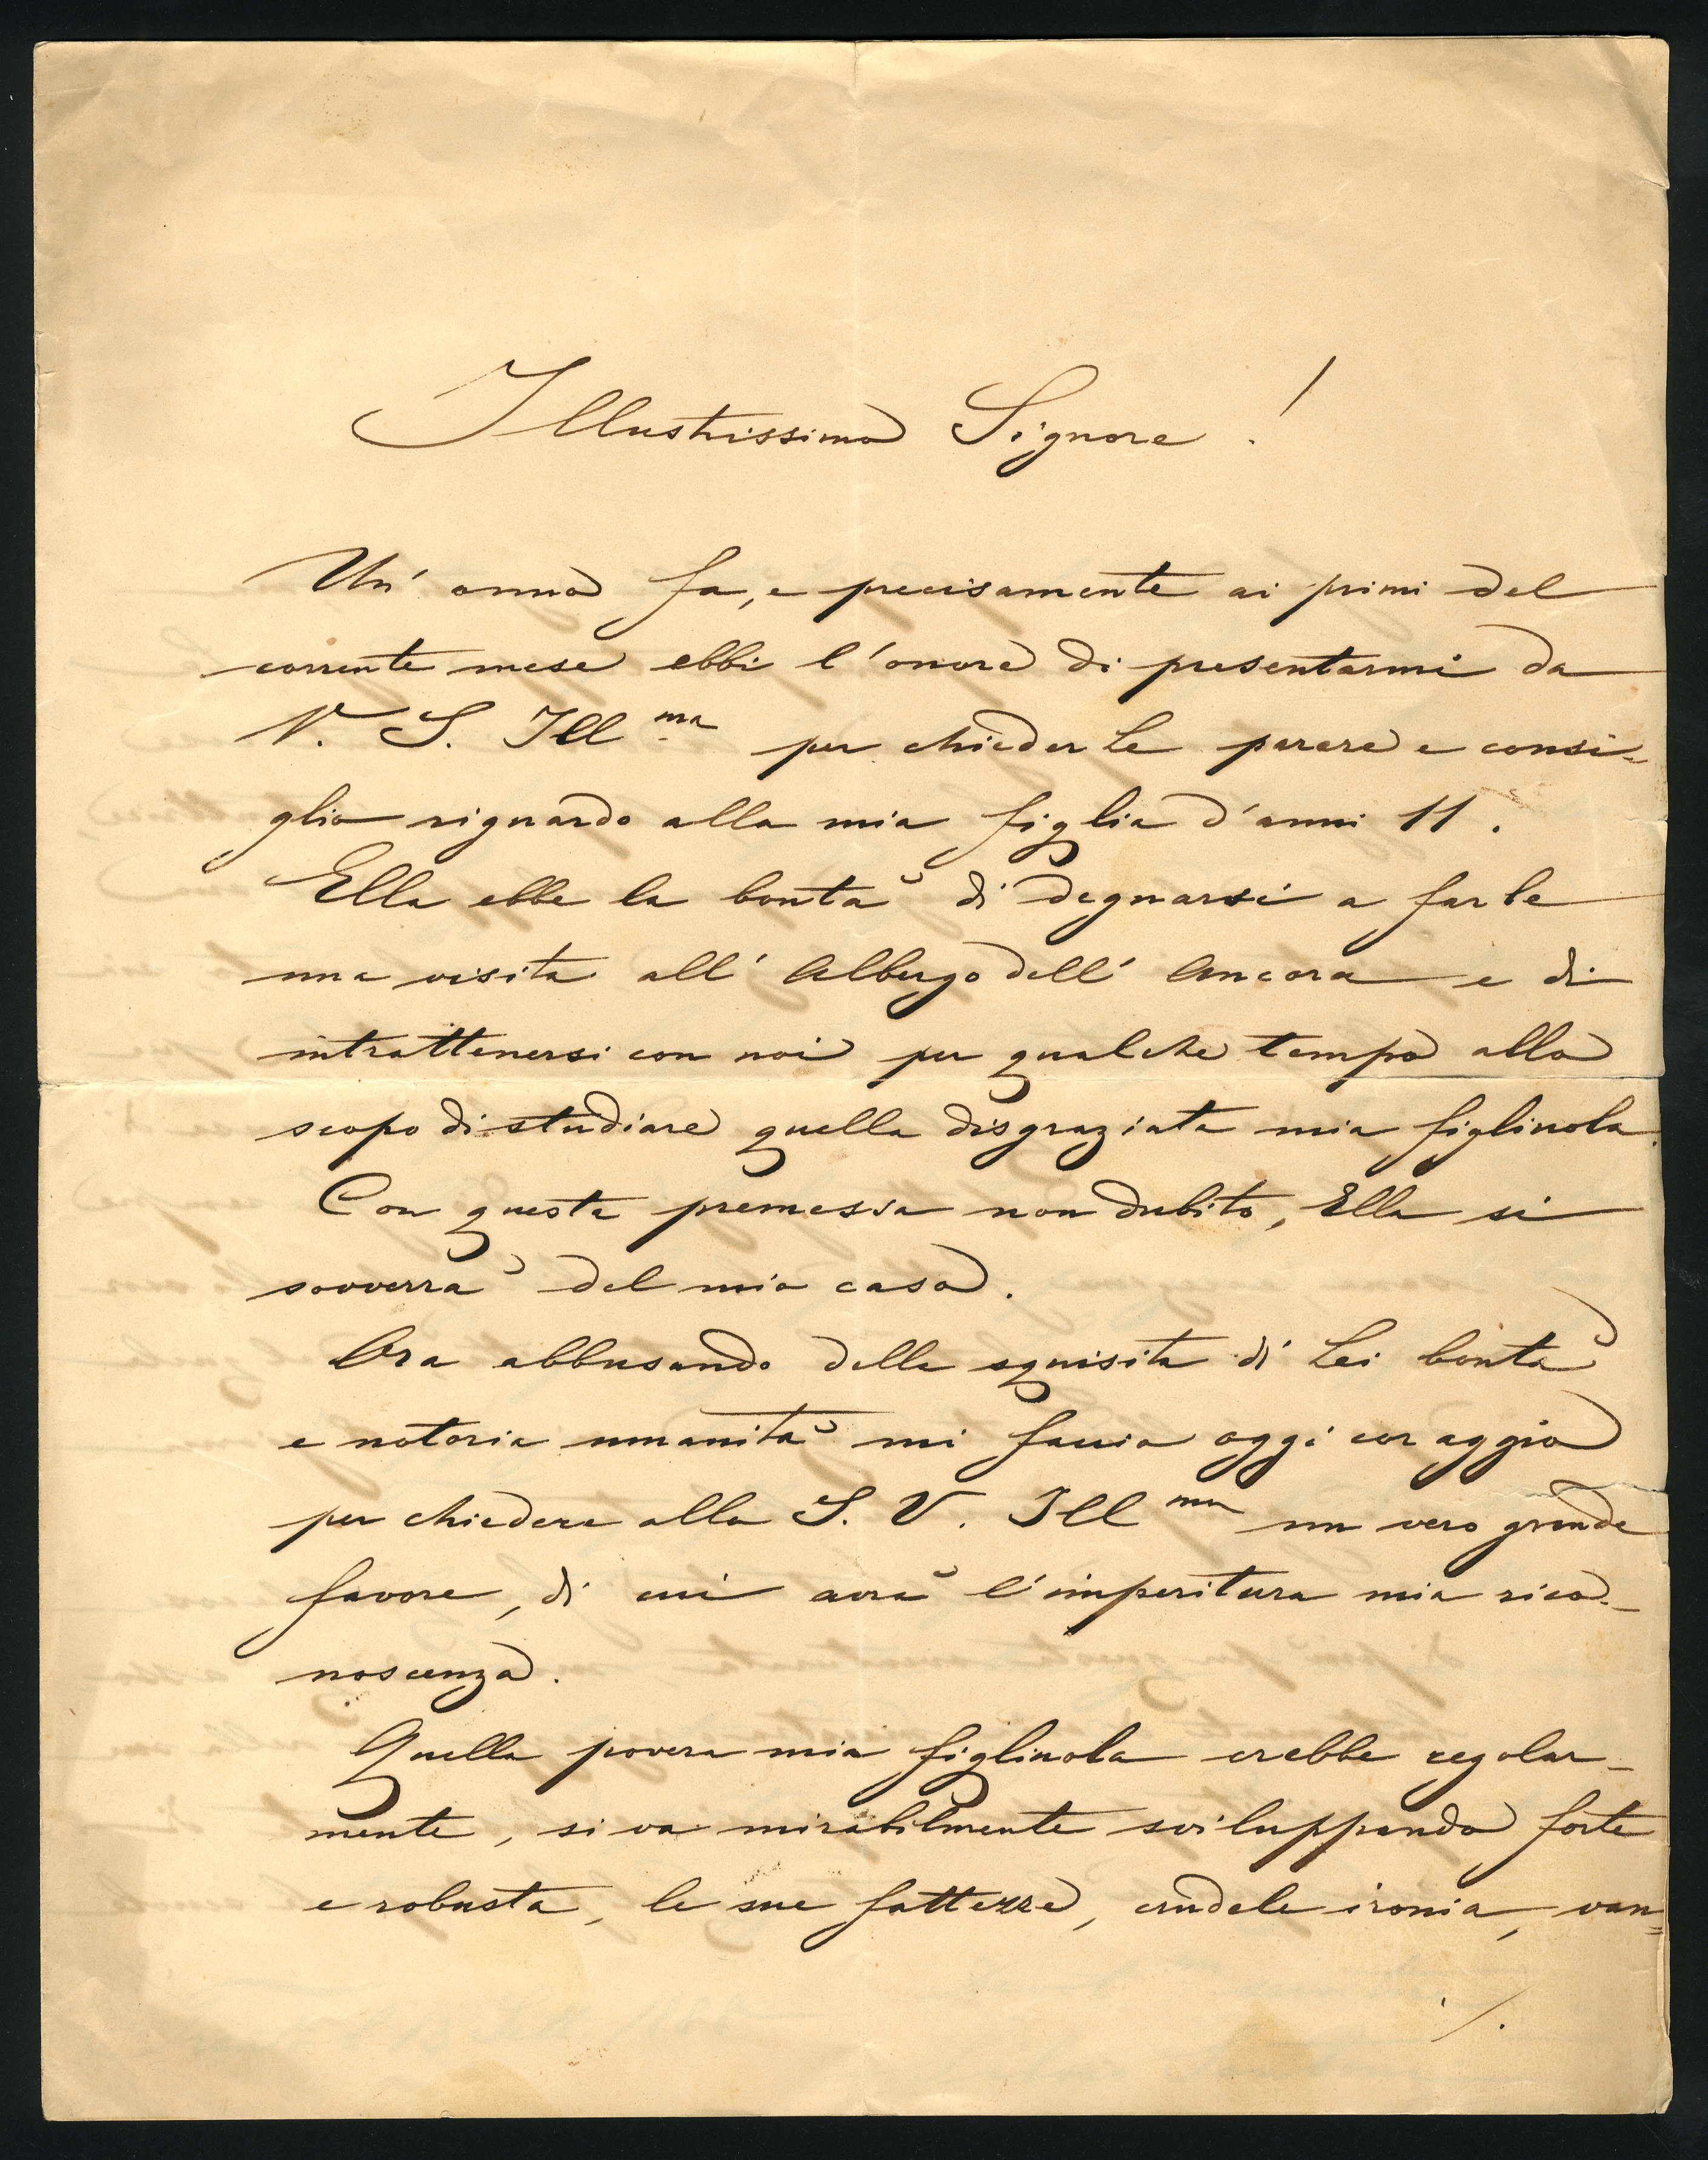 Illustrissimo Signore!
Un' anno fa, e precisamente ai primi del
corrente mese ebbi l'onore di presentarmi da
V. S. Ill ma per chiederLe parere e consi=
glio riguardo alla mia figlia d'anni 11.
Ella ebbe la bontà di degnarsi a farle
una visita all' Albergo dell' Ancora e di
intrattenersi con noi per qualche tempo allo
scopo di studiare quella disgraziata mia figliuola.
Con questa premessa non dubito, Ella si
sovverrà del mio caso.
Ora abbusando della squisita di Lei bontà
e notoria umanità mi faccio oggi coraggio
per chiedere alla S. V. Ill ma un vero grande
favore, di cui avrà l'imperitura mia rico-
noscenza.
Quella povera mia figliuola crebbe regolar-
mente, si va mirabilmente sviluppando forte
e robusta, le sue fattezze, crudele ironia, van=
./.